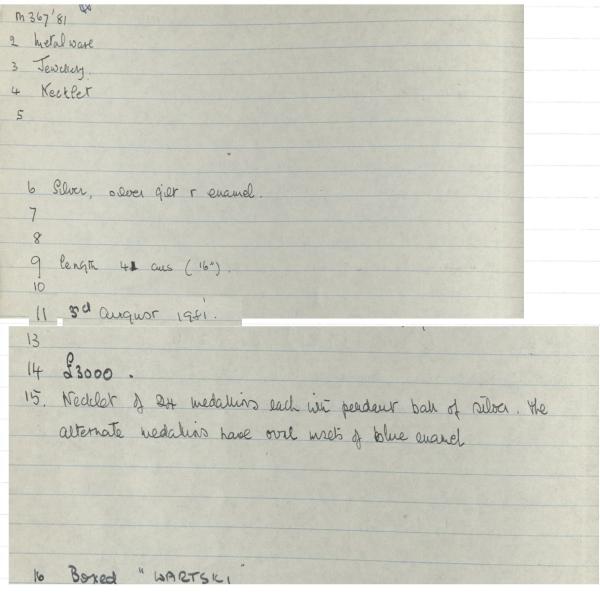 M367'81
2 Metalware
3 Jewellery.
4 Necklet
5
6 Silver, silver gilt & enamel.
7
8
9 length 41 cms (16").
10
11 3rd August 1981.
13
14 £3000.
15. Necklet of 24 medallions each with pendant ball of silver. The
alternate medallions have oval insets of blue enamel
16 Boxed "WARTSKI"